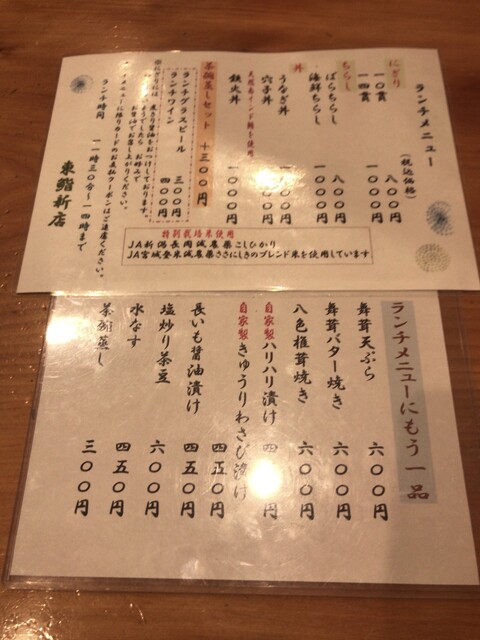 ランチメニュー
(税込価格)
にぎり
一〇貫 八〇〇円
一四貫 一〇〇〇円
ちらし
ばらちらし 八〇〇円
海鮮ちらし 一〇〇〇円
丼
うなぎ丼
穴子丼
天然南インド鮪を使用
鉄火丼 一〇〇〇円
茶碗蒸しセット +三〇〇円
ランチグラスビール 三〇〇円
ランチワイン 五〇〇円
お醤油でお召し上がりください。
ランチメニューに限りカードのお支払クーポンはご遠慮ください。
ランチ時間 一一時三〇分~一四時まで
東鮨新店
特別栽培米使用
JA新潟長岡減農薬こしひかり
JA宮城登米減農薬ささにしきのブレンド米を使用しています
ランチメニューにもう一品
舞茸天ぷら 六〇〇円
舞茸バター焼き 六〇〇円
八色椎茸焼き 六〇〇円
自家製ハリハリ漬け
自家製きゅうりわさび漬け 四五〇円
長いも醤油漬け 四五〇円
塩炒り茶豆 六〇〇円
水なす 四五〇円
茶碗蒸し 三〇〇円